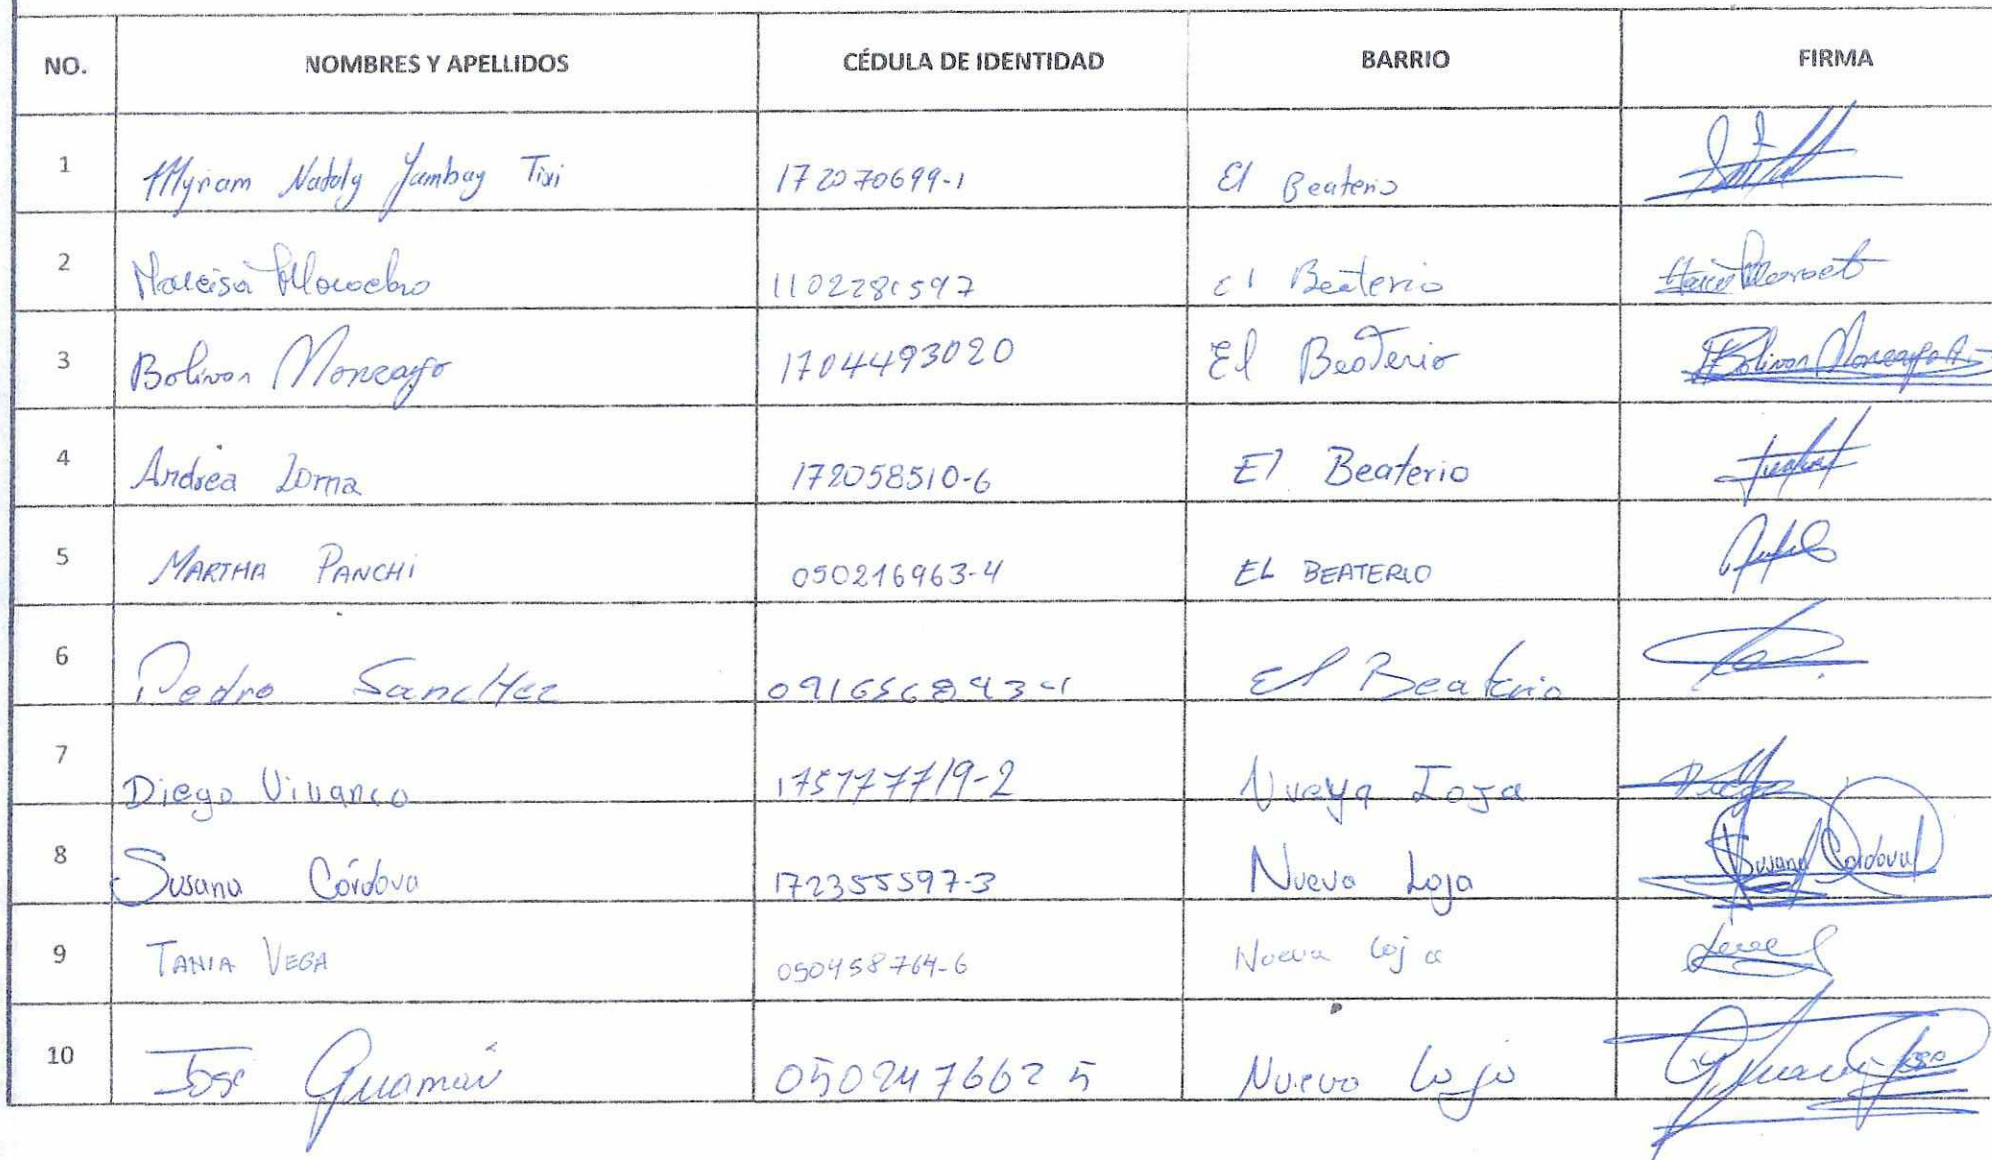 NO. NOMBRES Y APELLIDOS CÉDULA DE IDENTIDAD BARRIO FIRMA
1 Myriam Nataly Yambay Tixi 172070699-1 El Beaterio
2 1102281597 El Beaterio
3 Bolivar Moncayo 1704493020 El Beaterio Bolivar Moncayo
4 Andrea Loma 172058510-6 El Beaterio
5 MARTHA PANCHI 050216963-4 EL BEATERIO
6 Pedro Sanchez El Beaterio
7 Diego Vivanco 175177719-2 Nueva Loja
8 Susana Córdova 172355597-3 Nueva Loja Susana Cordova
9 TANIA VEGA 050458764-6 Nueva loja
10 Jose Guamán 0502476625 Nueva loja